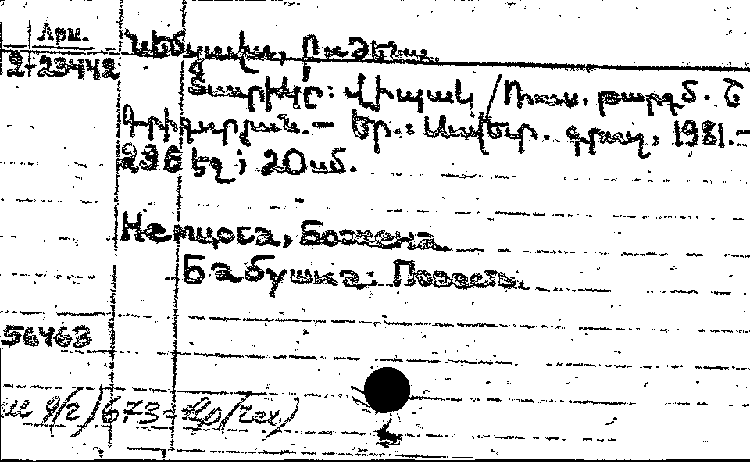 Арм.
2-23442
Նեմցովա, Բոժենա.
Տատիկը: Վիպակ / Ռուս. թարգմ. Շ
Գրիգորյան.— Եր.: Սովետ. գրող, 1981.—
296 էջ; 20սմ.
Немцова, Божена
Бабушка: Повесть.
56463